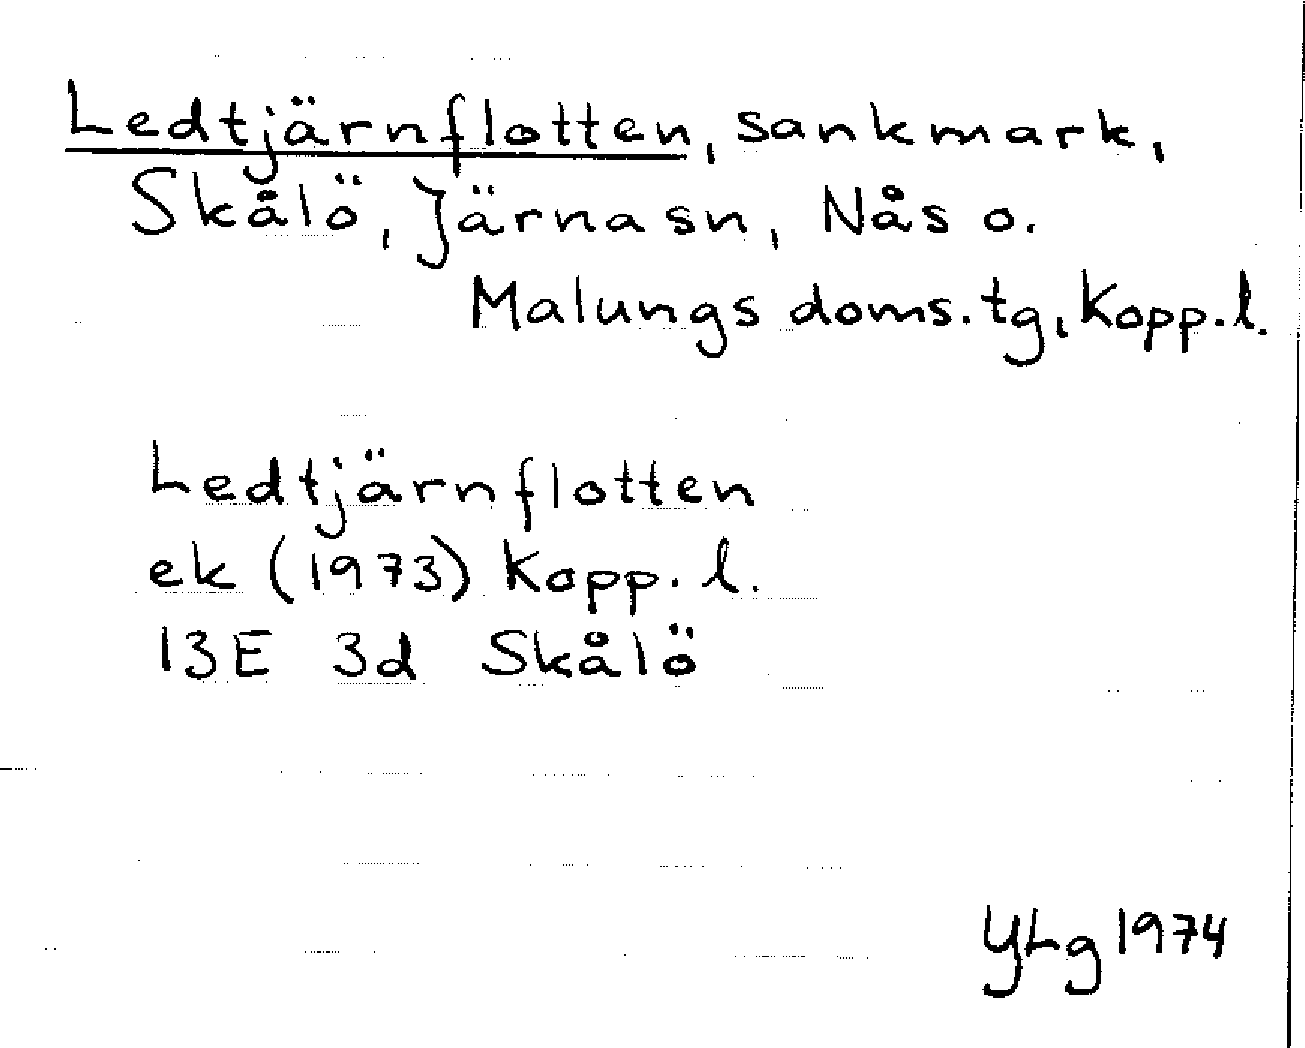 Ledtjärnflotten, sankmark,
Skålö, Järnasn, Nås o.
Malungs doms.tg, Kopp.l.
Ledtjärnflotten
ek (1973) Kopp. l.
13E 3d Skålö
YLg 1974